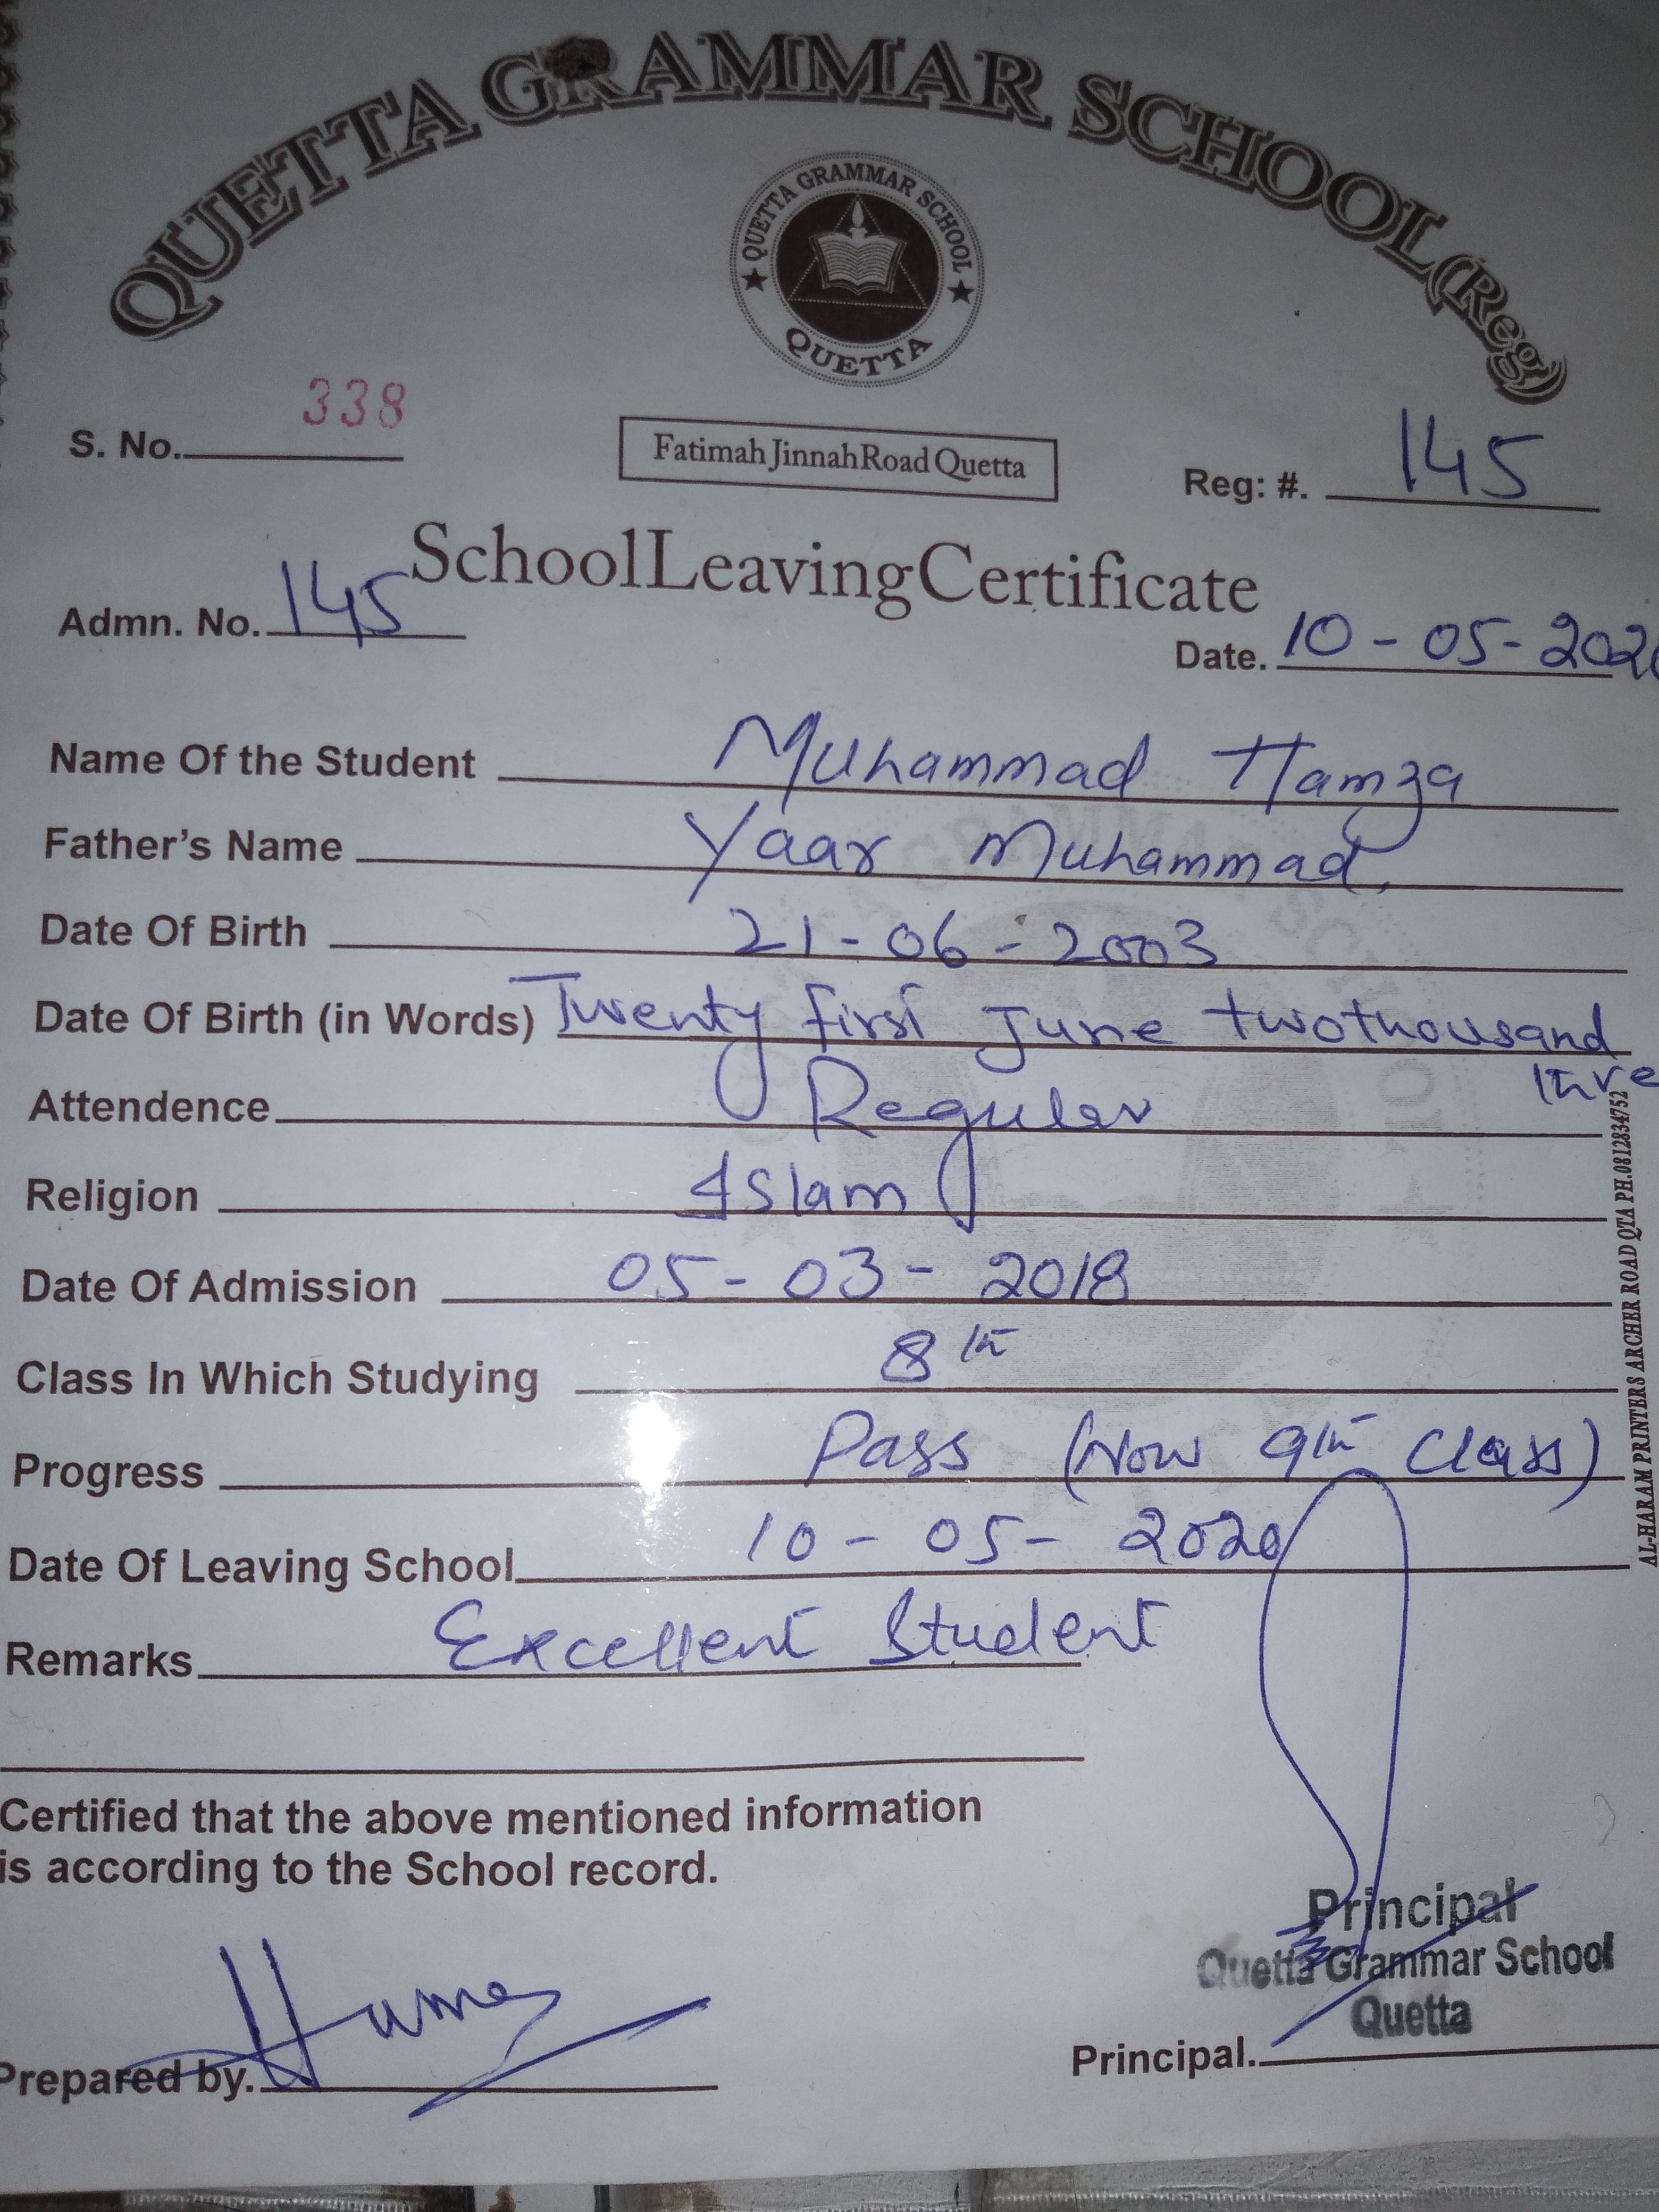 QUETTA GRAMMAR SCHOOL (Reg)
QUETTA GRAMMAR SCHOOL
QUETTA
S. No. 338
Fatimah Jinnah Road Quetta
Reg: #. 145
School Leaving Certificate
Admn. No. 145
Date. 10-05-202
Name Of the Student Muhammad Hamza
Father's Name Yaar Muhammad
Date Of Birth 21-06-2003
Date Of Birth (in Words) Twenty first June twothousand
thre
Attendence Regular
Religion Islam
Date Of Admission 05-03-2018
Class In Which Studying 8th
Progress Pass (Now 9th Class)
Date Of Leaving School 10-05-2020
Remarks Excellent Student
Certified that the above mentioned information
is according to the School record.
Principal
Quetta Grammar School
Quetta
Prepared by.
Principal.
AL-HARAM PRINTERS ARCHER ROAD QTA PH.0812834752